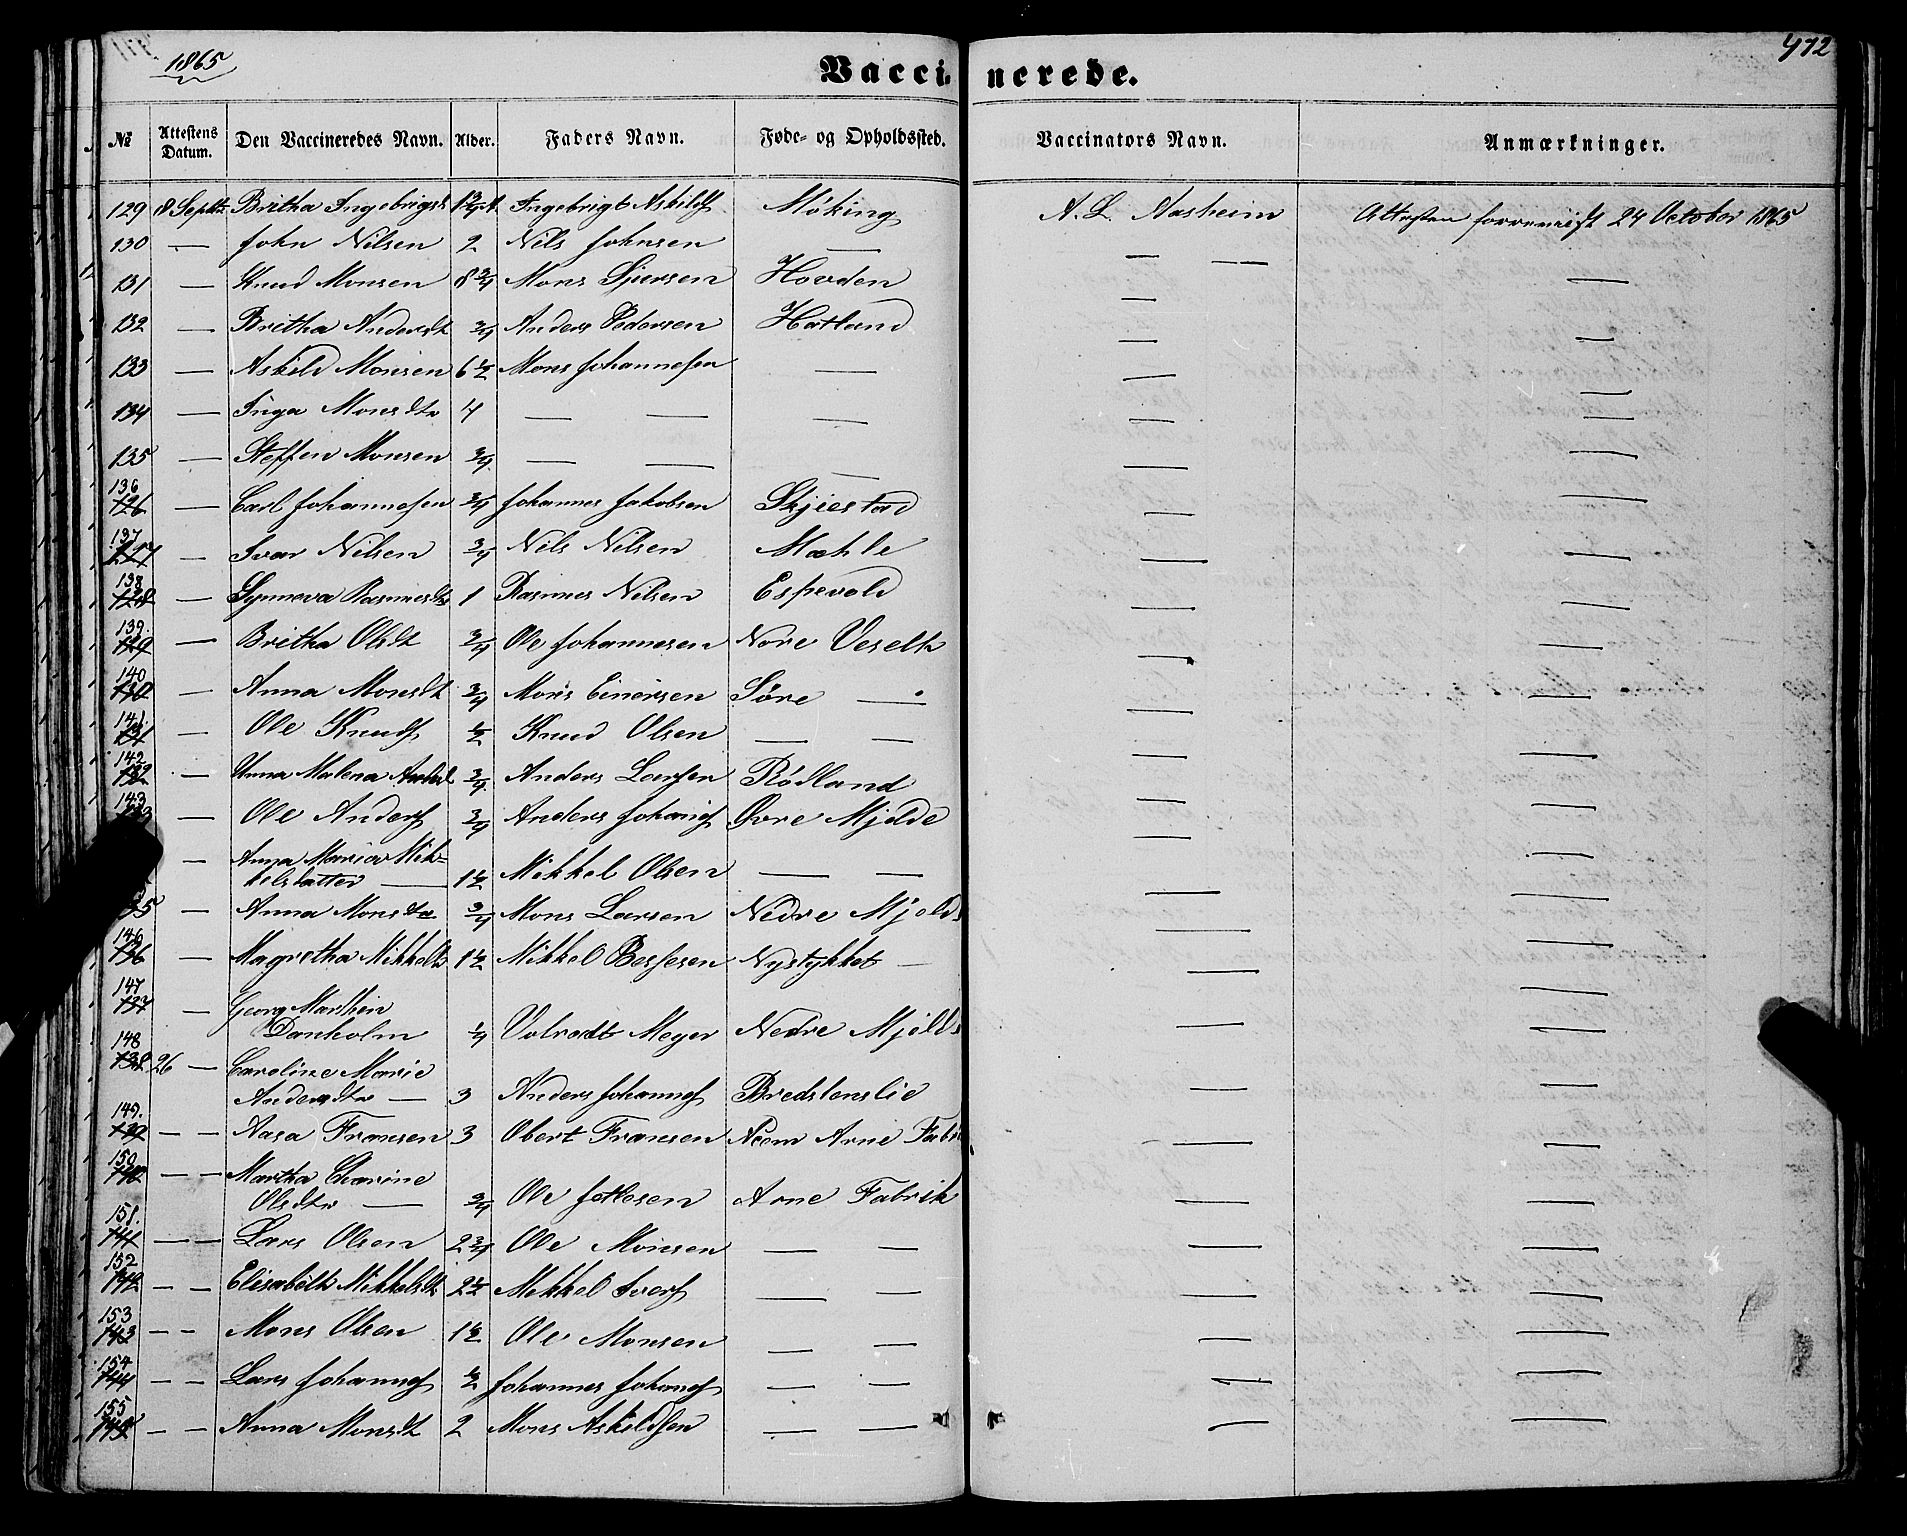 1865
Vaccinerede.
472
№ Attestens Datum. Den Vaccineredes Navn. Alder. Faders Navn. Føde- og Opholdssted. Vaccinators Navn. Anmærkninger.
129 18 Septbr Britha Ingebrigtsd Ingebrigt Askilds Møking A. L. Aasheim Attesten forevист 24 October 1865
130 — John Nilsen 2 Nils Johnsen — — — —
131 — Knud Monsen 8 3/4 Mons Sjursen Hovden — —
132 — Britha Andersdt 3/4 Anders Pedersen Hatland — —
133 — Askild Monsen 6 1/2 Mons Johannesen — — —
134 — Inga Monsdtr 4 — — — — —
135 — Steffen Monsen 3/4 — — — — —
136 126 — Carl Johannesen 3/4 Johannes Jakobsen Skjiestad — —
137 127 — Ivar Nilsen 3/4 Nils Nilsen Mæhle — —
138 128 — Synneva Rasmusdtr 1 Rasmus Nilsen Espevold — —
139 129 — Britha Olsdt 3/4 Ole Johannesen Nore Veselk — —
140 130 — Anna Monsdt 3/4 Mons Einersen Søre — — —
141. 131 — Ole Knuds 1/2 Knud Olsen — — — —
142 132 — Anna Malena Andersd 3/4 Anders Larsen Rødland — —
143 133 — Ole Anders 3/4 Anders Johans Øvre Mjelde — —
— Anna Maria Mik-
kelsdatter — 1 1/2 Mikkel Olsen — — — —
135 — Anna Monsdtr 3/4 Mons Larsen Nedre Mjeld — —
146 136 — Magretha Mikkelsd 1 1/2 Mikkel Bessesen Nystykket — — —
147 137 — Georg Marthin
Danholm 1/4 Volradt Meyer Nedre Mjeld — —
148 138 26 — Caroline Marie
Andersdtr — 3 Anders Johannes Bredstenslie — —
149. 139 — — Aasa Fransen 3 Obert Fransen Neom Arne Fabr — —
150 140 — — Martha Charine
Olsdtr — 3/4 Ole Jettesen Arne Fabrik — —
151. 141 — — Lars Olsen 2 3/4 Ole Monsen — — — —
152 142 — — Elisabeth Mikkelsdt 2 1/2 Mikkel Ivers — — — —
153 143 — — Mons Olsen 1 1/2 Ole Monsen — — — —
154 144 — — Lars Johannes 1/2 Johannes Johans — — — —
155 145 — — Anna Monsdt 2 Mons Askildsen — — — —